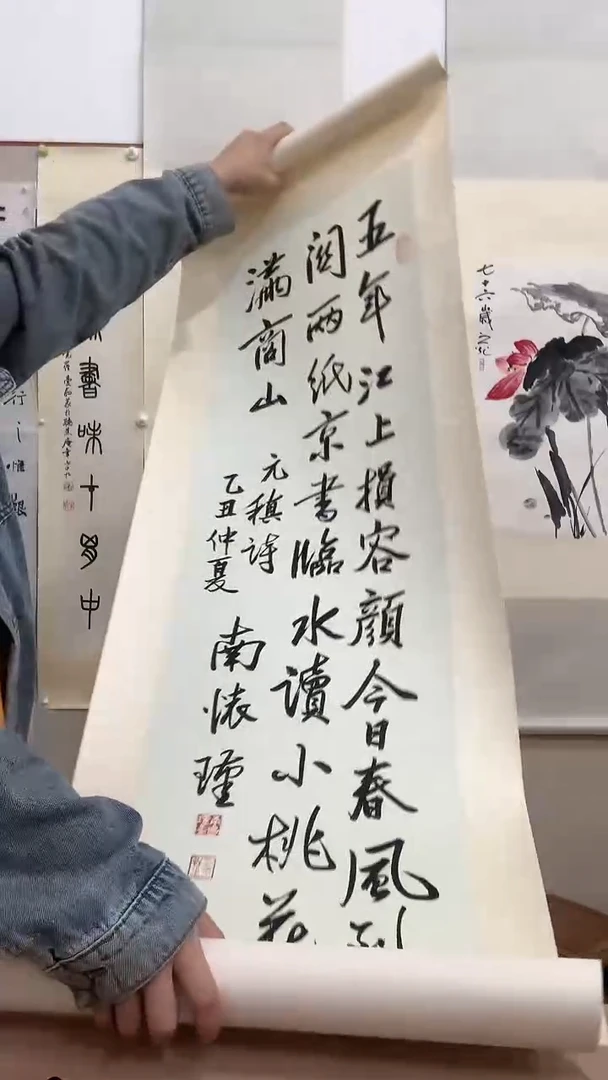 五年江上損容顏今日春風到
関兩紙京書臨水讀小桃花
滿商山
元稹詩
乙丑仲夏
南懷瑾
七十六歲
書味
中
行之惟艱